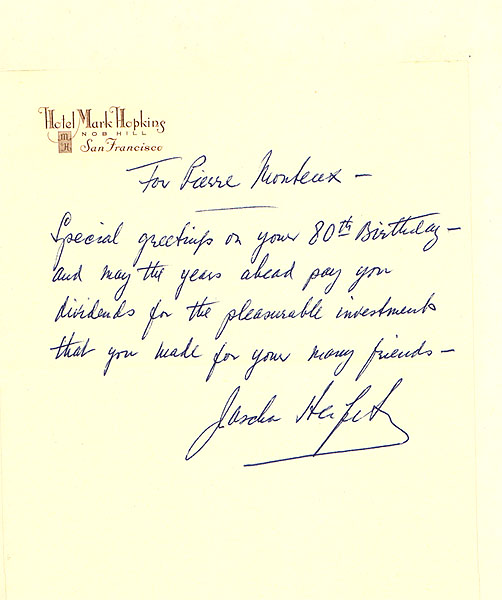 Hotel Mark Hopkins
NOB HILL
MH
San Francisco
For Pierre Monteux —
Special greetings on your 80th Birthday —
and may the years ahead pay you
dividends for the pleasurable investments
that you made for your many friends —
Jascha Heifetz